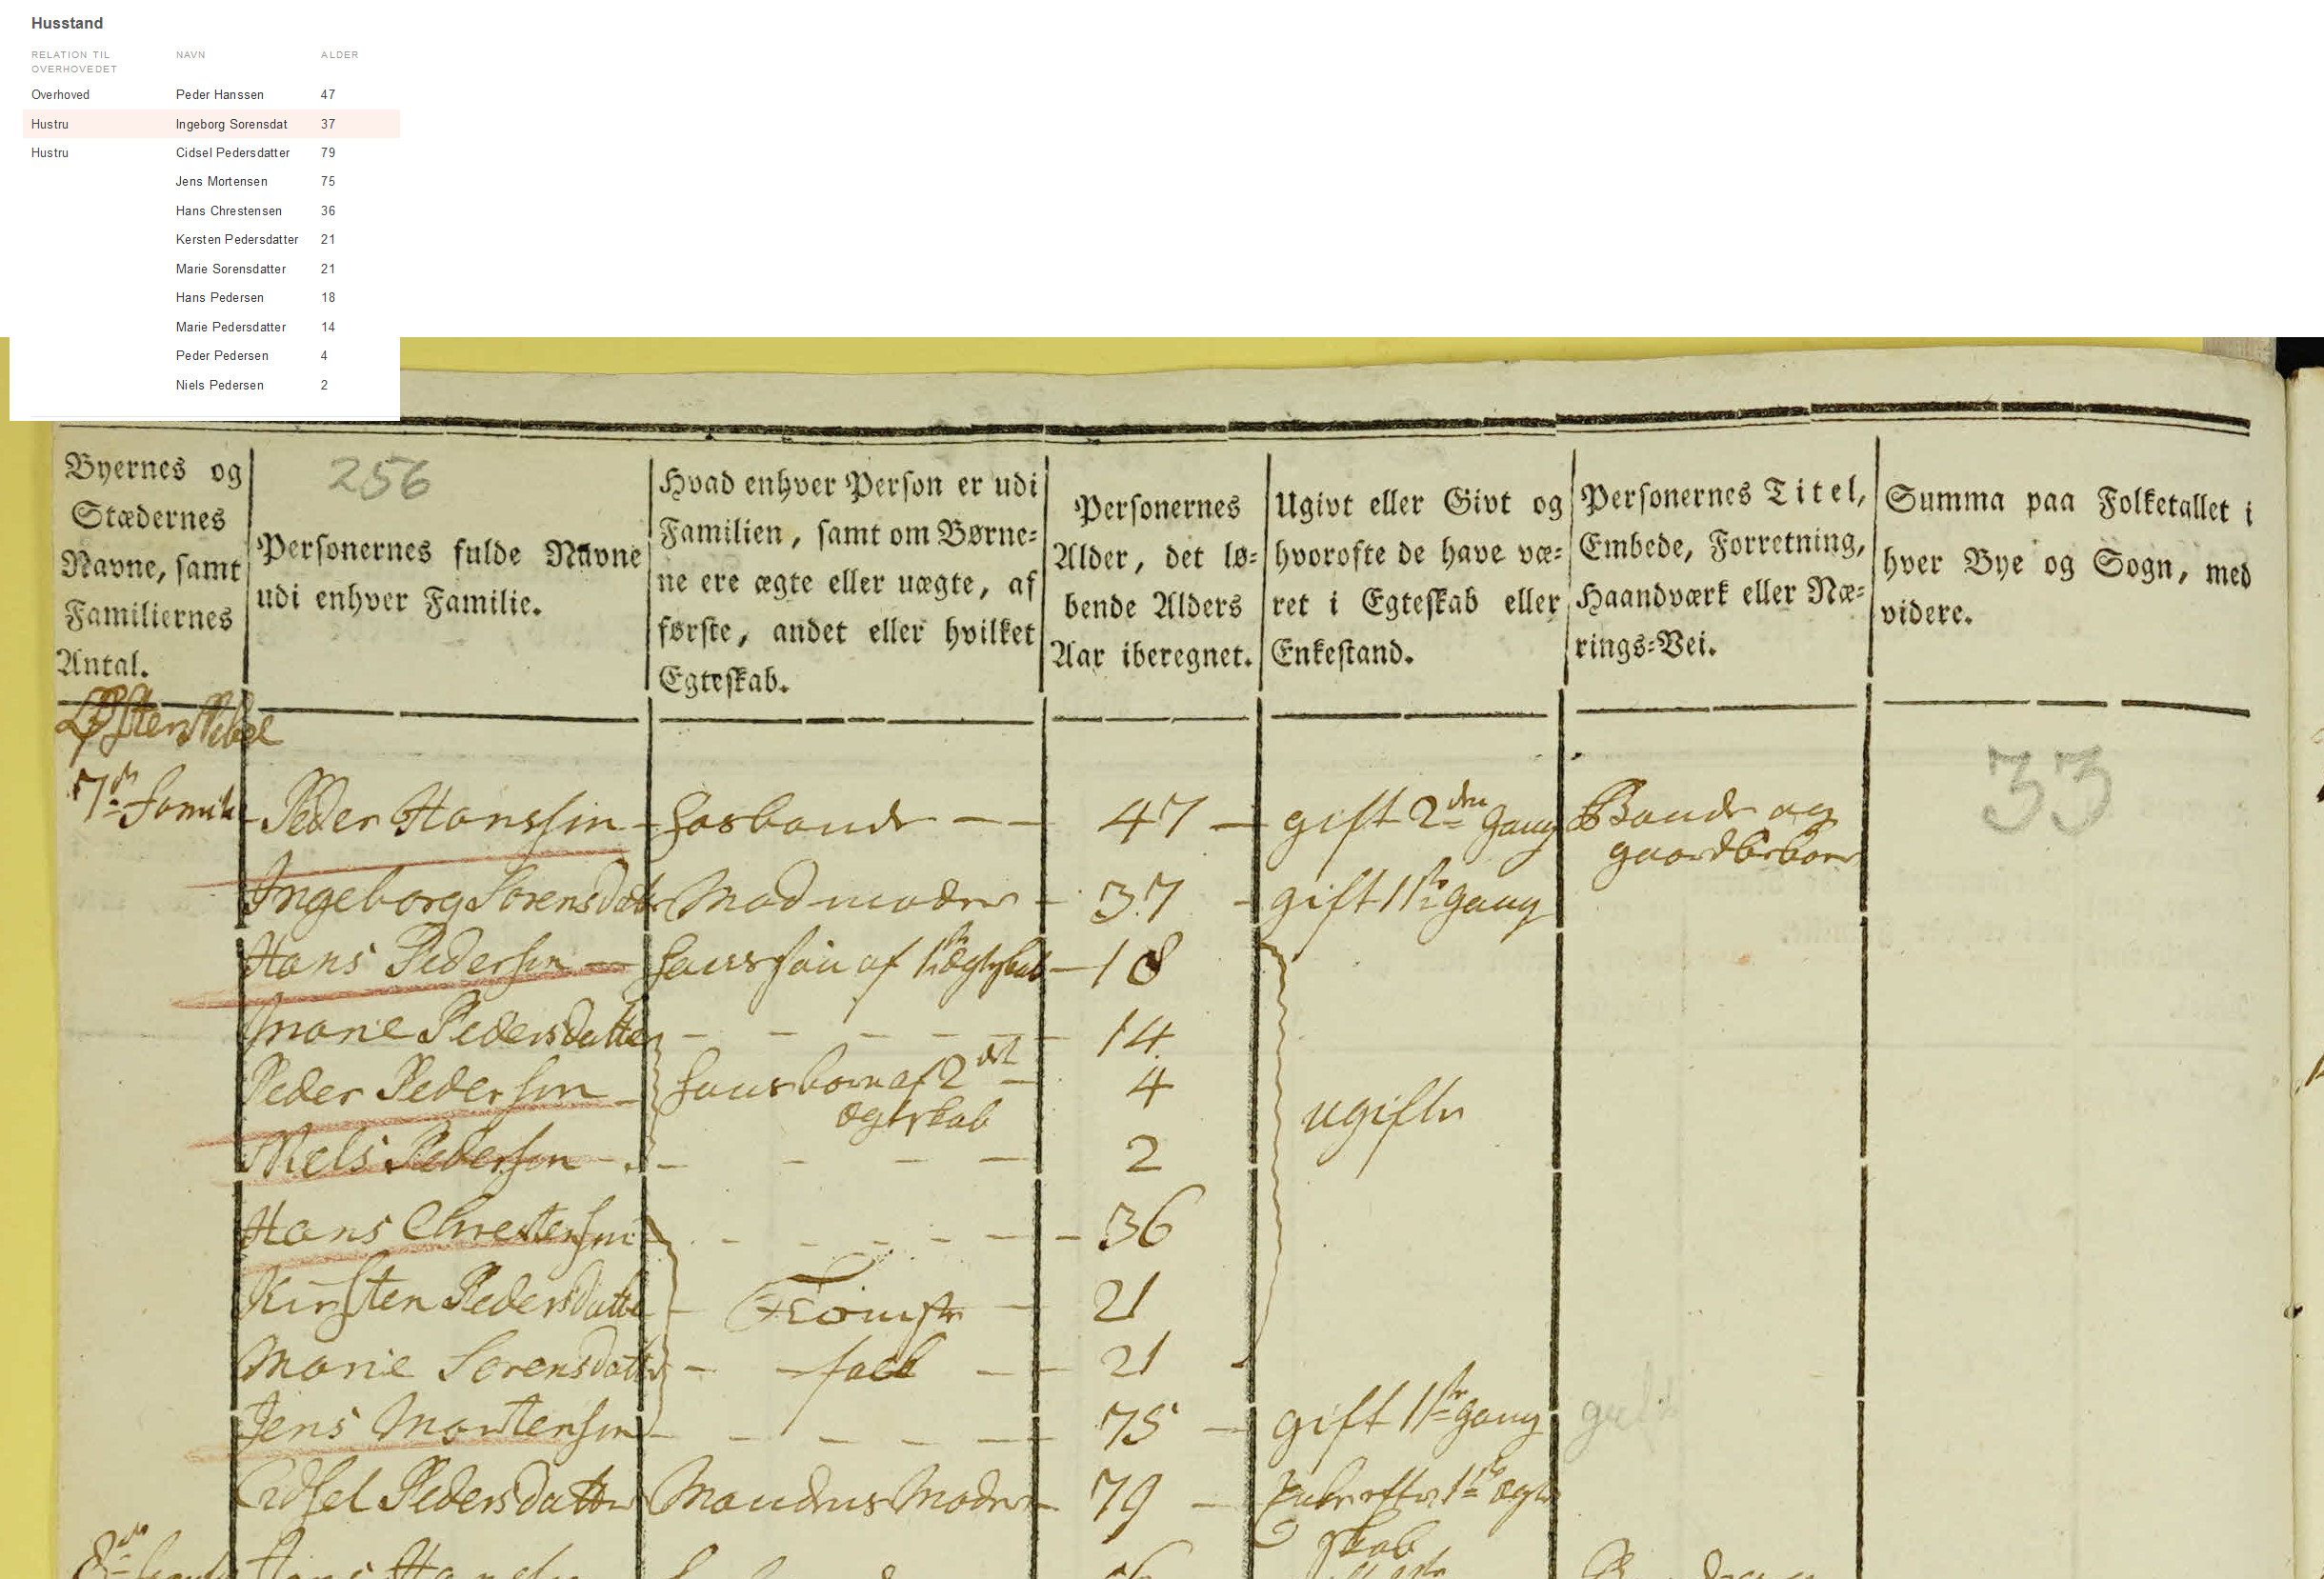 Husstand
RELATION TIL OVERHOVEDET NAVN ALDER
Overhoved Peder Hanssen 47
Hustru Ingeborg Sorensdat 37
Hustru Cidsel Pedersdatter 79
Jens Mortensen 75
Hans Chrestensen 36
Kersten Pedersdatter 21
Marie Sorensdatter 21
Hans Pedersen 18
Marie Pedersdatter 14
Peder Pedersen 4
Niels Pedersen 2
Byernes og
Stædernes
Navne, samt
Familiernes
Antal.
256
Personernes fulde Navne
udi enhver Familie.
Hvad enhver Person er udi
Familien, samt om Børne-
ne ere ægte eller uægte, af
første, andet eller hvilket
Egteskab.
Personernes
Alder, det lø-
bende Alders
Aar iberegnet.
Ugivt eller Givt og
hvorofte de have væ-
ret i Egteskab eller
Enkestand.
Personernes Titel,
Embede, Forretning,
Haandværk eller Næ-
rings-Vei.
Summa paa Folketallet i
hver Bye og Sogn, med
videre.
33
7de Peder Hanssen Hosbonde 47 gift 2den Gang Bonde og
gaardbeboer
Ingeborg Sorensdatter Madmoder 37 gift 1ste Gang
Hans Pedersen 18
Marie Pedersdatter 14
Peder Pedersen 4
Ægteskab ugifte
Niels Pedersen 2
Hans Chrestensen 36
Kirsten Pedersdatter 21
Marie Sorensdatter 21
Jens Mortensen 75 gift 1ste Gang gift
Cidsel Pedersdatter Mandens Moder 79
skab
8de Jens Hansen